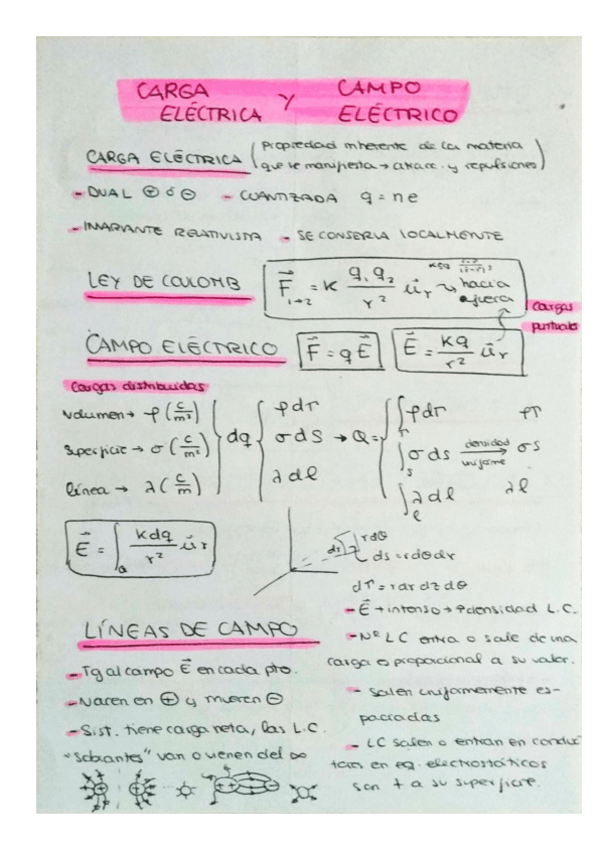 CARGA ELÉCTRICA Y CAMPO ELÉCTRICO
CARGA ELÉCTRICA (Propiedad inherente de la materia que se manifiesta → atracc. y repulsiones)
- DUAL ⊕ ó ⊖ - CUANTIZADA q = ne
- INVARIANTE RELATIVISTA - SE CONSERVA LOCALMENTE
LEY DE COULOMB F⃗ 1→2 = K q₁ q₂ / r² u⃗r → hacia afuera
cargas puntuales
CAMPO ELÉCTRICO F⃗ = q E⃗ E⃗ = Kq / r² u⃗r
Cargas distribuidas
Volumen → ρ (C/m³)
Superficie → σ (C/m²)
línea → λ (C/m)
dq { ρdτ σds λdl → Q = { ∫τ ρdτ ∫s σds ∫l λdl
densidad uniforme → ρτ σs λl
E⃗ = ∫Q Kdq / r² u⃗r
dr rdθ
ds = rdθdr
dτ = rdrdzdθ
LÍNEAS DE CAMPO
- Tg al campo E⃗ en cada pto.
- Nacen en ⊕ y mueren ⊖
- Sist. tiene carga neta, las L.C. "sobrantes" van o vienen del ∞
- E⃗ → intenso → ↑densidad L.C.
- Nº LC entra o sale de una carga es proporcional a su valor.
- Salen uniformemente es-
paciadas
- LC salen o entran en conduc
tores en eq. electrostáticos
son ⊥ a su superficie.